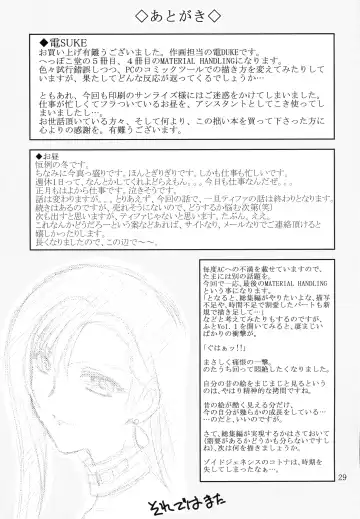 ◇あとがき◇
◆電SUKE
お買い上げ有難うございました。作画担当の電DUKEです。
へっぽこ堂の5冊目、4冊目のMATERIAL HANDLINGになります。
色々試行錯誤しつつ、PCのコミックツールでの描き方を変えてみたりして
いますが、果たしてどんな反応が返ってくるでしょうか…
ともあれ、今回も印刷のサンライズ様にはご迷惑をかけてしまいました。
仕事が忙しくてフラついているお昼を、アシスタントとしてこき使ってし
まいましたし…。
お世話頂いている方々、そして何より、この拙い本を買って下さった方に
心よりの感謝を。有難うございます。
◆お昼
恒例の冬です。
ちなみに今真っ盛りです。ほんとぎりぎりです。しかも仕事も忙しいです。
週休1日って、なんとかしてくれよどらえもん。。。今日も仕事なんだぜ。。。
正月もはよから仕事です。泣きそうです。
話は変わりますが、、、とりあえず、今回の話で、一旦ティファの話は終わりとなります。
続きはあるのですが、売れそうにないので、どうするか悩む次第(笑)
次も出すと思いますが、ティファじゃないと思います。たぶん。ええ。
これなんかどうだろーという案などあれば、サイトなり、メールなりでご連絡頂けると
嬉しかったりします。
長くなりましたので、この辺で～～。
毎度ACへの不満を載せていますので、
たまには別の話題を。
今回で一応、最後のMATERIAL HANDLING
という事になります。
「となると、総集編がやりたいよな、描写
不足や、時間不足で割愛したパートも新
規で描き足して…」
などと考えてみたりもするのですが、
ふとVol.1を開いてみると、凄まじい
ばかりの衝撃が。
「ぐはぁっ!!」
まさしく痛恨の一撃。
のたうち回って悶絶したくなりました。
自分の昔の絵をまじまじと見るというの
は、やはり精神的な拷問ですね。
昔の絵が酷く見える分だけ、
今の自分が幾らかの成長をしている…
…のだと、いいのですが。
さて、総集編が実現するかはさておいて
(需要があるかどうかも分らないですし
ね)、次は何を描きましょうか。
ゾイドジェネシスのコトナは、時期を
失してしまったなぁ…。
それではまた
29